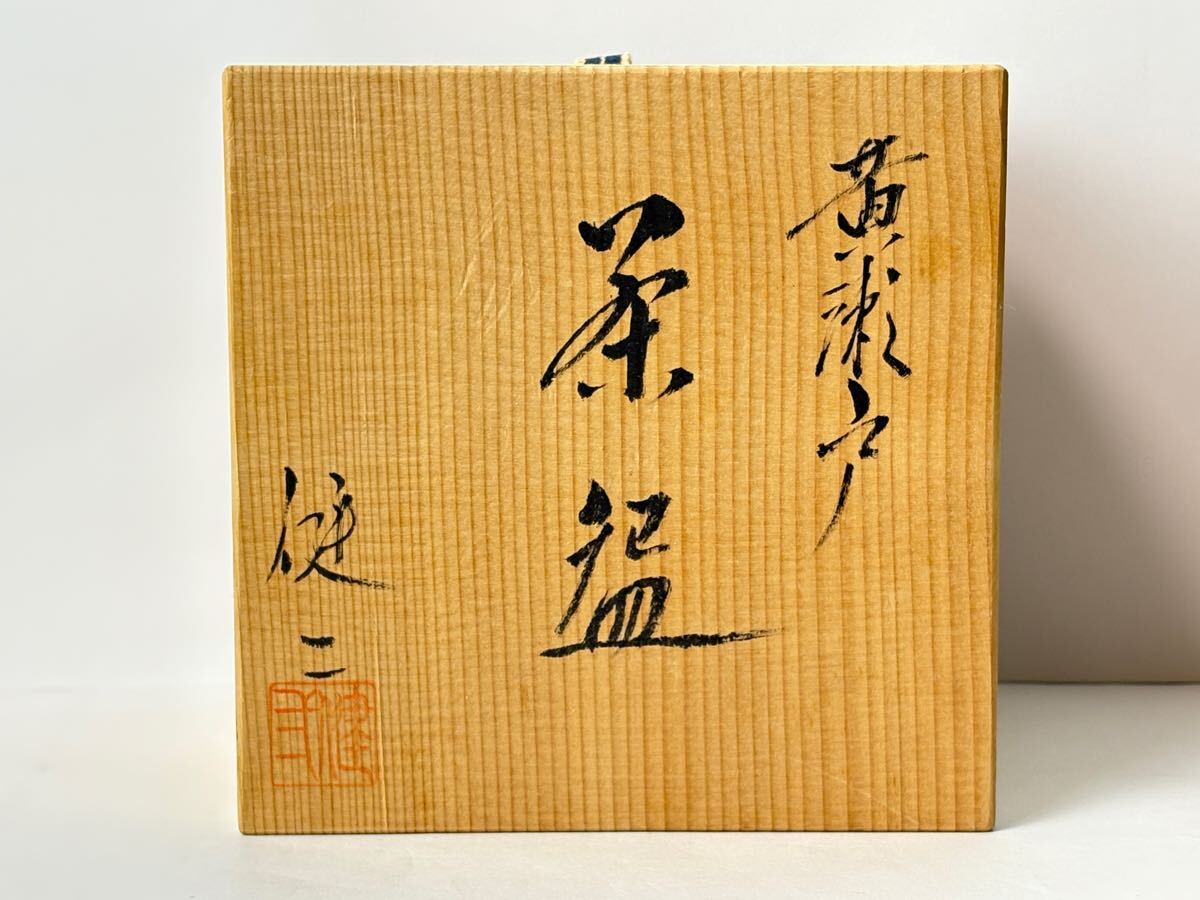 黄瀬戸
茶盌
健二